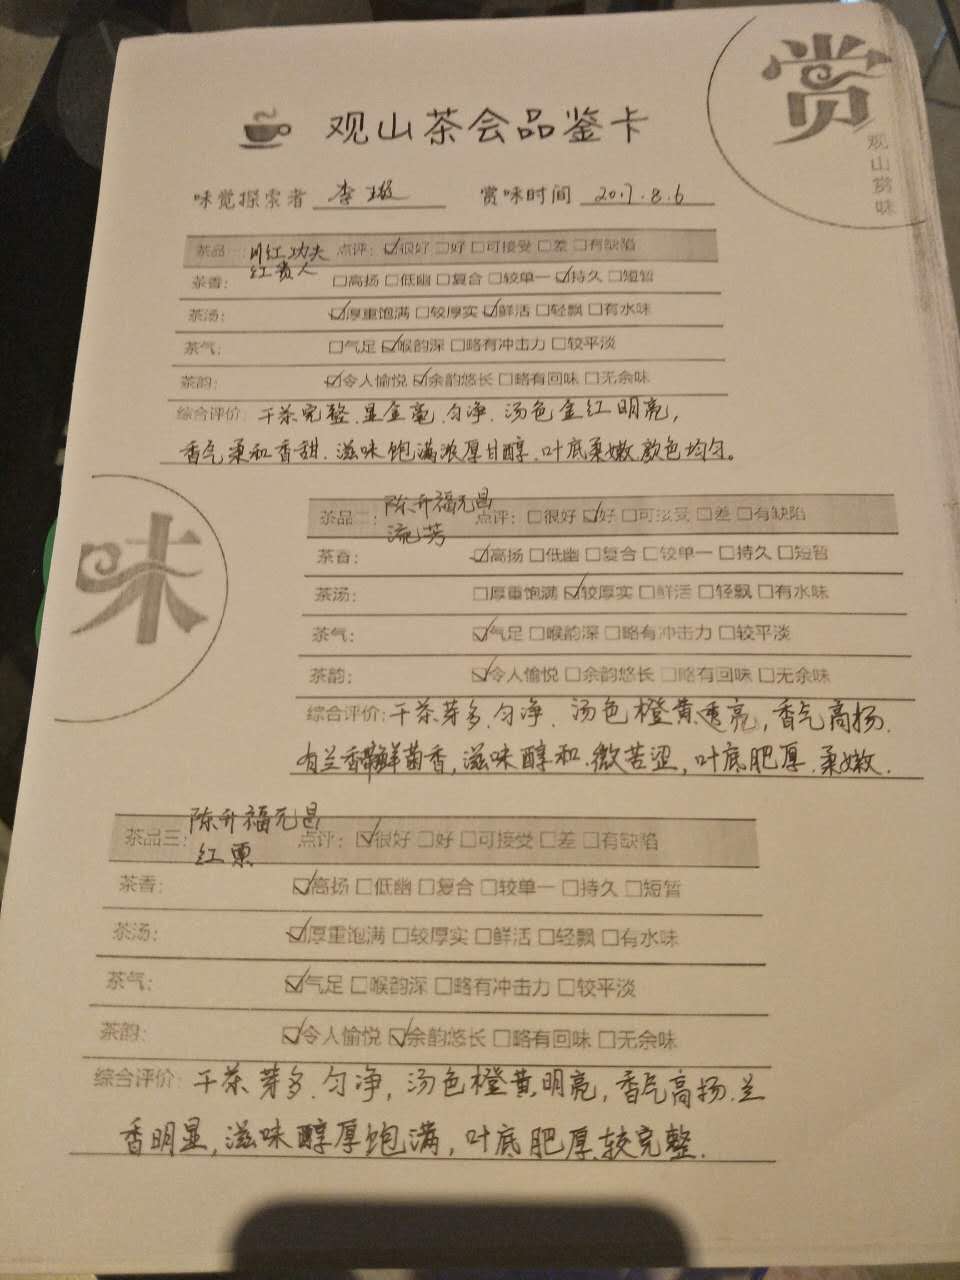 赏
观山赏味
观山茶会品鉴卡
味觉探索者 李璇 赏味时间 2017.8.6
茶品一: 川红功夫 点评: ☑很好 □好 □可接受 □差 □有缺陷
红贵人
茶香: □高扬 □低幽 □复合 □较单一 ☑持久 □短暂
茶汤: ☑厚重饱满 □较厚实 ☑鲜活 □轻飘 □有水味
茶气: □气足 ☑喉韵深 □略有冲击力 □较平淡
茶韵: ☑令人愉悦 ☑余韵悠长 □略有回味 □无余味
综合评价: 干茶完整.显金毫.匀净.汤色金红明亮,
香气柔和香甜.滋味饱满浓厚甘醇.叶底柔嫩.颜色均匀。
味
茶品二: 陈升福元昌 点评: □很好 ☑好 □可接受 □差 □有缺陷
流芳
茶香: ☑高扬 □低幽 □复合 □较单一 □持久 □短暂
茶汤: □厚重饱满 ☑较厚实 □鲜活 □轻飘 □有水味
茶气: ☑气足 □喉韵深 □略有冲击力 □较平淡
茶韵: ☑令人愉悦 □余韵悠长 □略有回味 □无余味
综合评价: 干茶芽多.匀净.汤色橙黄透亮,香气高扬.
有兰香带鲜菌香,滋味醇和.微苦涩,叶底肥厚.柔嫩.
茶品三: 陈升福元昌 点评: ☑很好 □好 □可接受 □差 □有缺陷
红票
茶香: ☑高扬 □低幽 □复合 □较单一 □持久 □短暂
茶汤: ☑厚重饱满 □较厚实 □鲜活 □轻飘 □有水味
茶气: ☑气足 □喉韵深 □略有冲击力 □较平淡
茶韵: ☑令人愉悦 ☑余韵悠长 □略有回味 □无余味
综合评价: 干茶芽多.匀净,汤色橙黄明亮,香气高扬.兰
香明显,滋味醇厚饱满,叶底肥厚.较完整.